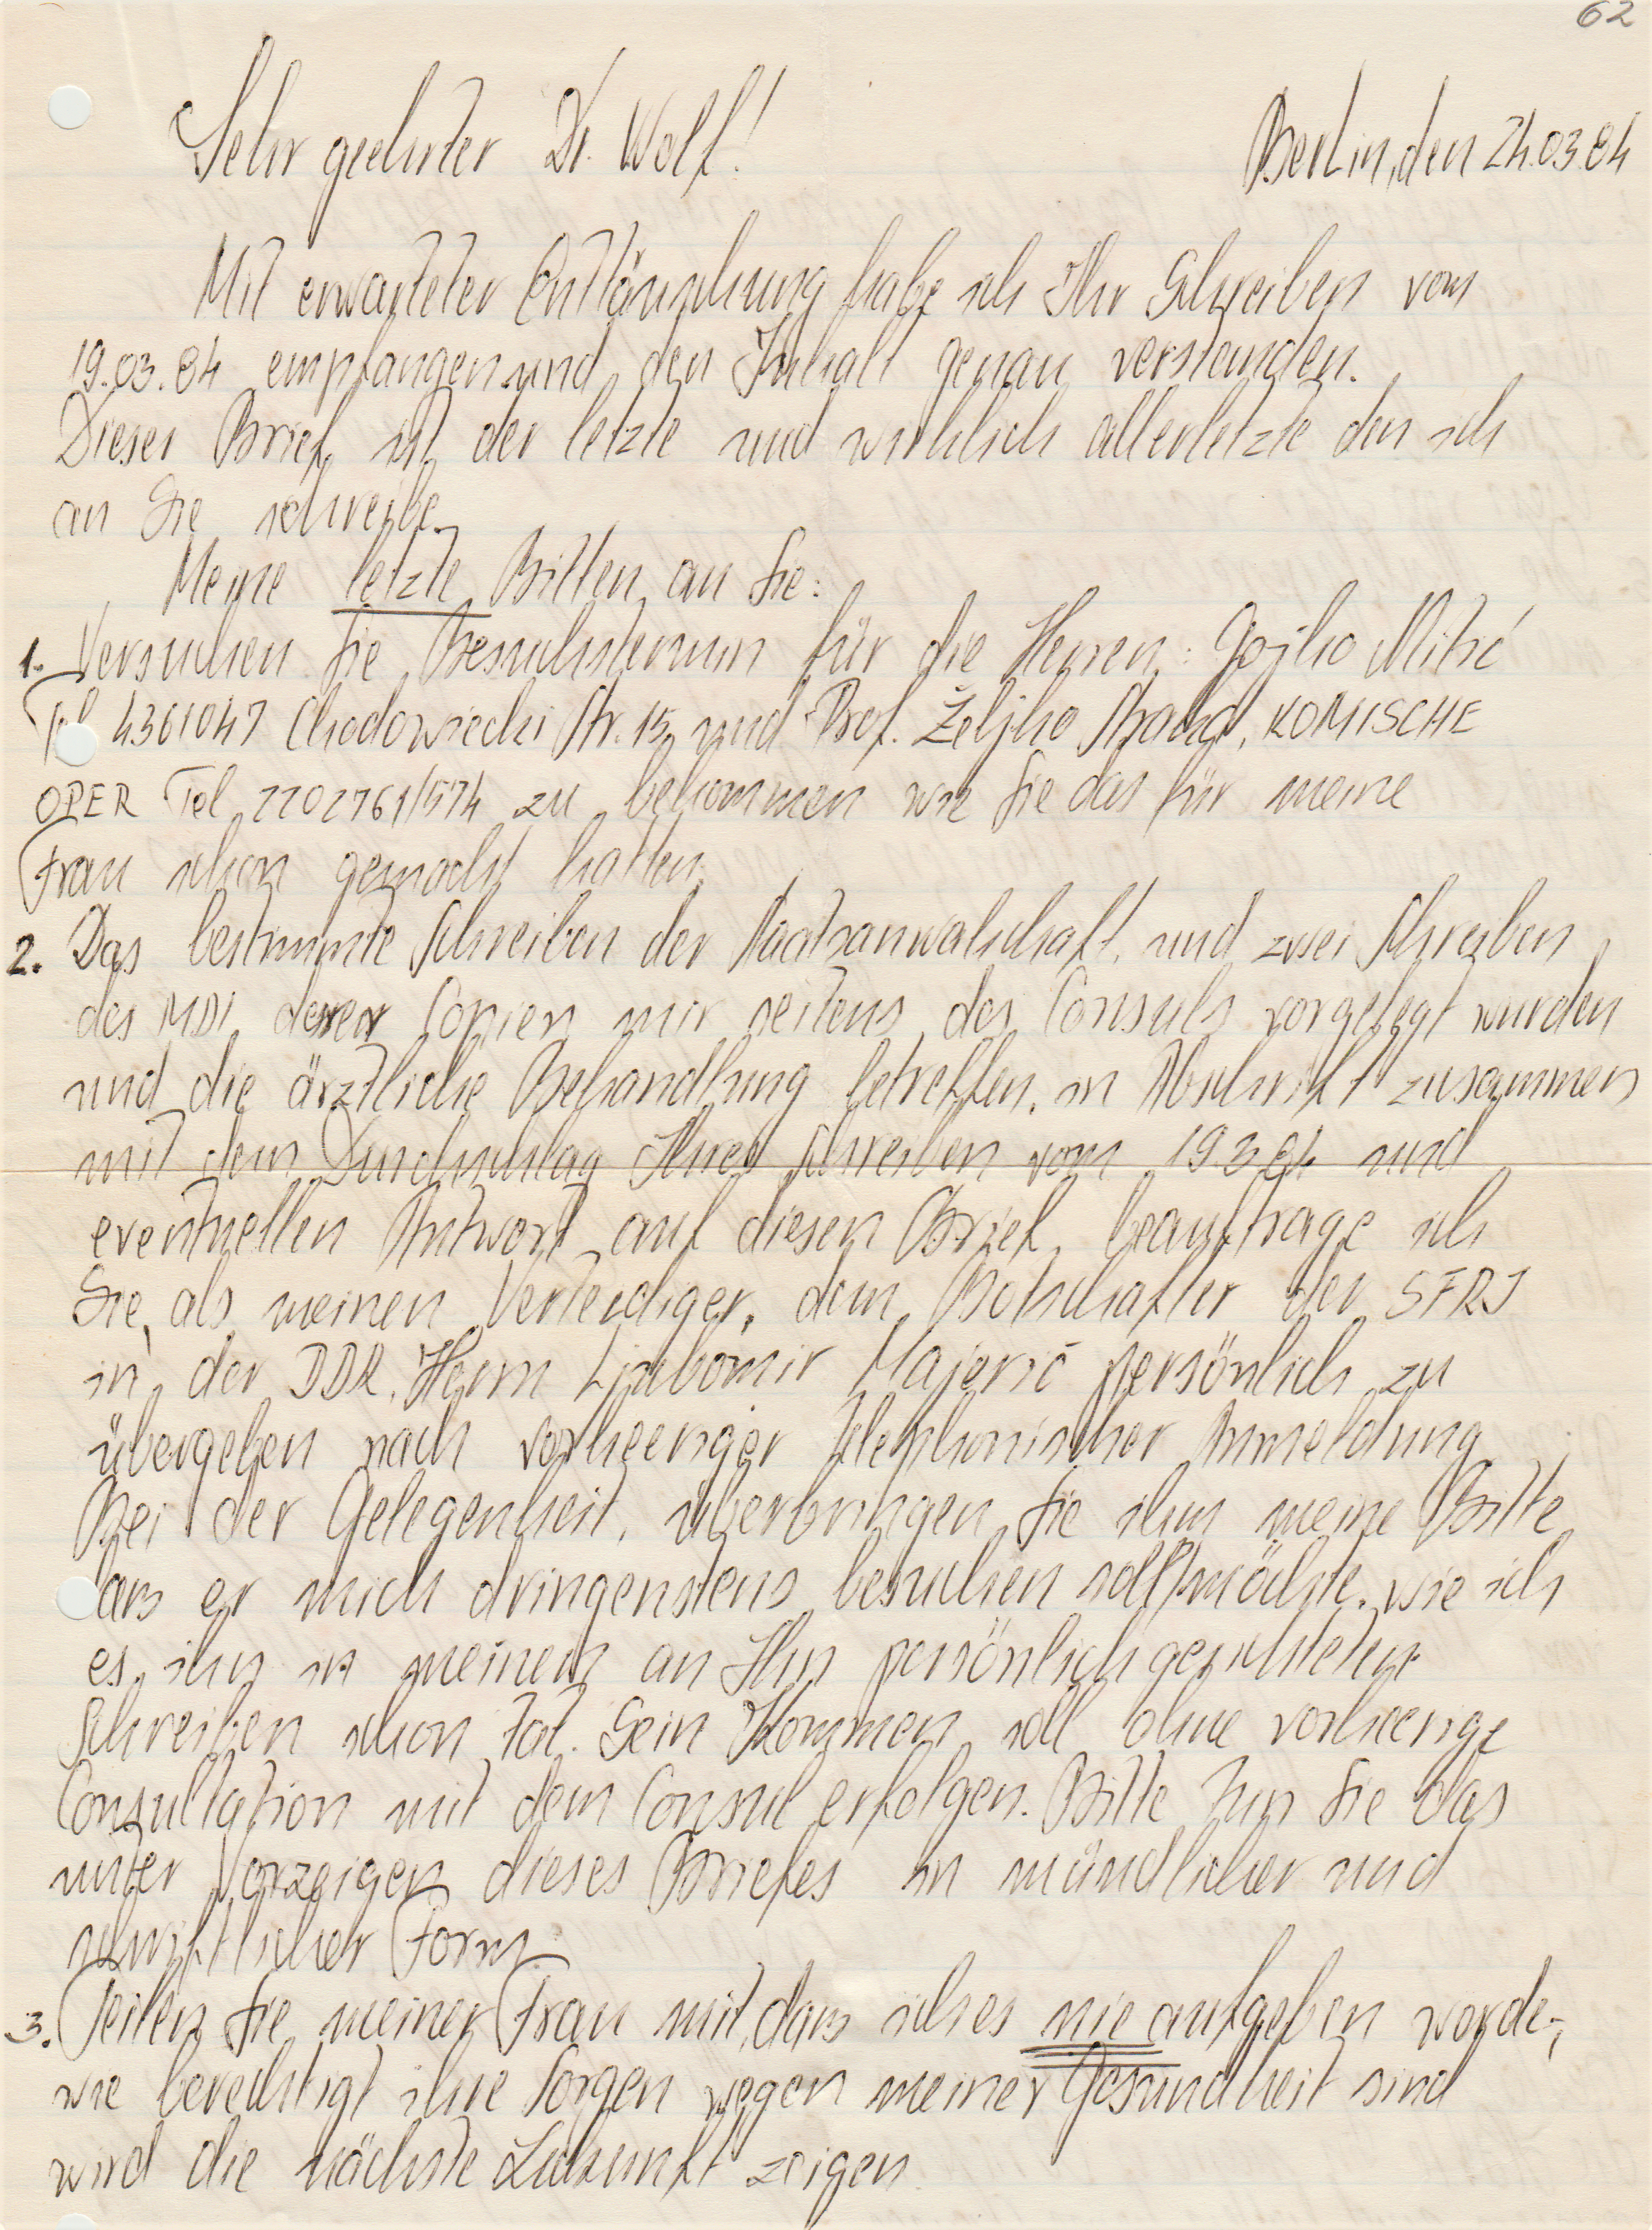 62
Sehr geehrter Dr. Wolf!
Berlin, den 24.03.84
Mit erwarteter Enttäuschung habe ich Ihr Schreiben vom
19.03.84 empfangen und den Inhalt genau verstanden.
Dieser Brief ist der letzte und wirklich allerletzte den ich
an Sie schreibe.
Meine letzte Bitten an Sie:
1. Versuchen Sie Besuchstermin für die Herren: Gojko Mitić
Tel 4361047 Chodowiecki Str. 15, und Prof. Željko Straka, KOMISCHE
OPER Tel 2202761/574 zu bekommen wie Sie das für meine
Frau schon gemacht hatten.
2. Das bestimmte Schreiben der Staatsanwalschaft, und zwei Schreiben
des MDI, deren Copien mir seitens des Consuls vorgelegt wurden
und die ärztliche Behandlung betreffen, in Abschrift zusammen
mit dem Durchschlag Ihres Schreiben vom 19.3.84 und
eventuellen Antwort auf diesen Brief, beauftrage ich
Sie, als meinen Verteidiger, dem Botschafter der SFRJ
in der DDR, Herrn Ljubomir Majerić persönlich zu
übergeben nach vorheeriger telephonischer Anmeldung
Bei der Gelegenheit, überbringen Sie ihm meine Bitte
dass er mich dringenstens besuchen möchte, wie ich
es ihn in meinem an Ihn persönlich gerichteten
Schreiben schon tat. Sein Kommen soll ohne vorheerige
Consultation mit dem Consul erfolgen. Bitte tun Sie das
unter Vorzeigen dieses Briefes in mündlicher und
schriftlicher Form.
3. Teilen Sie meiner Frau mit, dass ich es nie aufgeben werde-,
wie berechtigt ihre Sorgen wegen meiner Gesundheit sind
wird die nächste Zukunft zeigen.